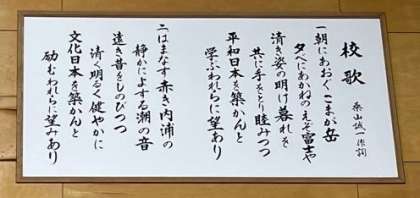 校歌
桑山誠一作詞
一 朝にあおぐこまが岳
夕べにあかねのえぞ富士や
清き姿の明け暮れを
共に手をとり睦みつつ
平和日本を築かんと
学ぶわれらに望あり
二 はまなす赤き内浦の
静かによする潮の音
遠き昔をしのびつつ
清く明るく健やかに
文化日本を築かんと
励むわれらに望みあり